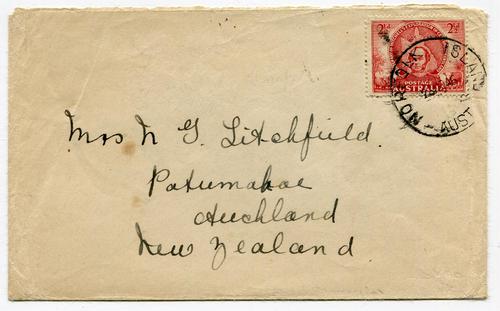 2½d 2½d
POSTAGE
AUSTRALIA
NORFOLK ISLAND
AUST
Mrs N G Litchfield
Patumahoe
Auckland
New Zealand